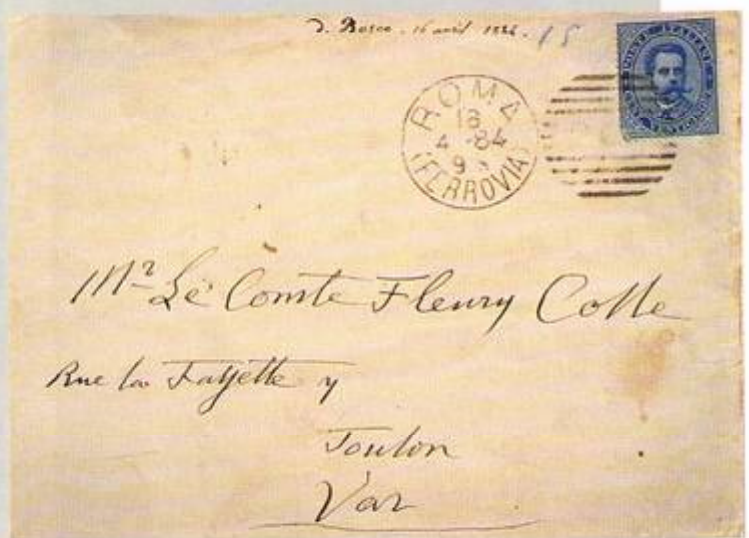 D. Bosco. 16 avril 1884. 15
POSTE ITALIANE
ROMA
18
4 -84
9 S
(FERROVIA)
Mr Le Comte Fleury Colle
Rue La Fayette 7
Toulon
Var